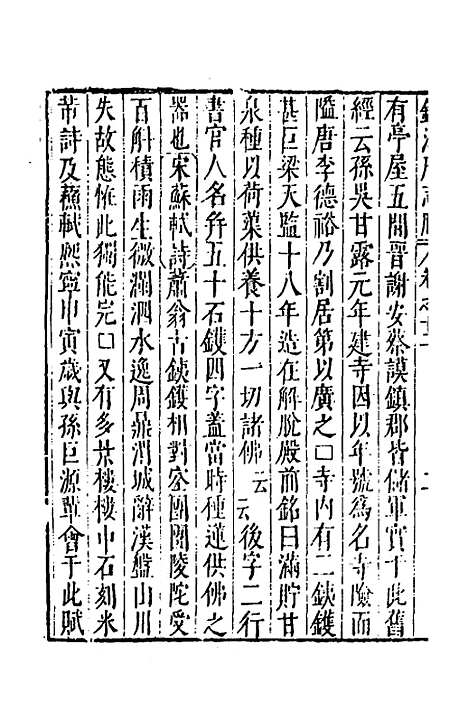 鎮江府志
有亭屋五間晉謝安蔡謨鎮郡皆儲軍實于此舊
經云孫吳甘露元年建寺因以年號爲名寺險而
隘唐李德裕乃割居第以廣之囗寺内有二鐵鑊
甚巨梁天監十八年造在解脫殿前銘曰滿貯甘
泉種以荷葉供養十方一切諸佛云云後字二行
書官人名幷五十石鑊四字蓋當時種蓮供佛之
器也宋蘇軾詩蕭翁古鐵鑊相對空團團陵陀受
百斛積雨生微瀾泗水逸周鼎渭城辭漢盤山川
失故態惟此獨能完囗又有多景樓樓中石刻米
芾詩及蘇軾熙寧甲寅歲與孫巨源輩會于此賦